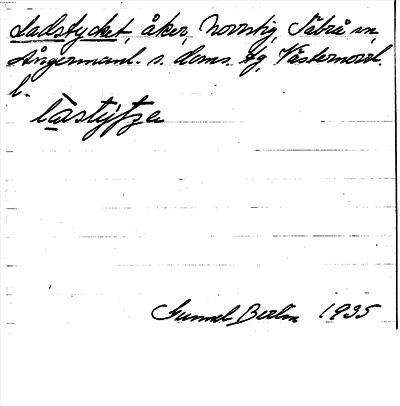 Ladstycket, åker, Norrstig, Säbrå sn,
Ångermanl. s. doms. tg, Västernorrl.
l.
Gunnel Berlin 1935